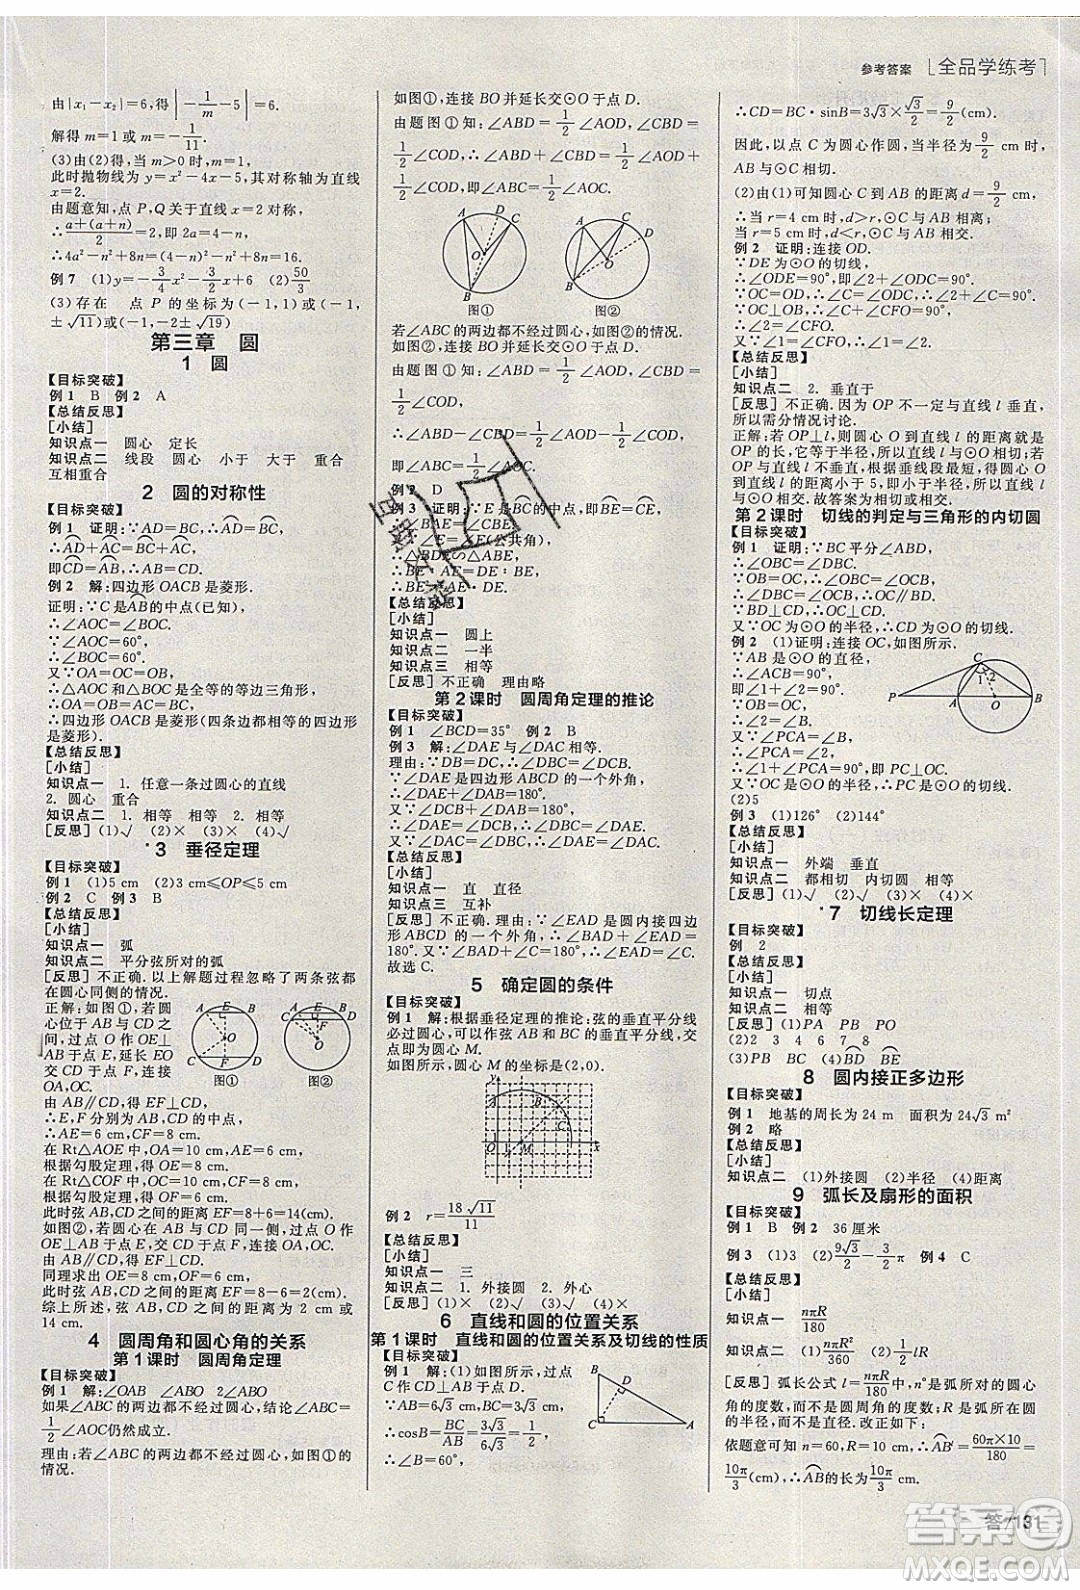 参考答案 [全品学练考]
由|x₁-x₂|=6,得|-1/m-5|=6.
解得 m=1或m=-1/11.
(3)由(2)得,当 m>0 时,m=1,
此时抛物线为 y=x²-4x-5,其对称轴为直线
x=2.
由题意知,点 P,Q关于直线 x=2 对称,
∴(a+(a+n))/2=2,即 2a=4-n,
∴4a²-n²+8n=(4-n)²-n²+8n=16.
例 7 (1)y=-3/4x²-3/2x+6 (2)50/3
(3)存在 点 P 的坐标为(-1,1)或(-1,
±√11)或(-1,-2±√19)
第三章 圆
1 圆
【目标突破】
例 1 B 例 2 A
【总结反思】
[小结]
知识点一 圆心 定长
知识点二 线段 圆心 小于 大于 重合
互相重合
2 圆的对称性
【目标突破】
例 1 证明:∵AD=BC,∴AD=BC,
∴AD+AC=BC+AC,
即CD=AB,∴AB=CD.
例 2 解:四边形 OACB 是菱形.
证明:∵C是AB的中点(已知),
∴∠AOC=∠BOC.
∵∠AOC=60°,
∴∠BOC=60°.
又∵OA=OC=OB,
∴△AOC和△BOC是全等的等边三角形,
∴OA=OB=AC=BC,
∴四边形 OACB 是菱形(四条边都相等的四边形是
菱形).
【总结反思】
[小结]
知识点一 1. 任意一条过圆心的直线
2. 圆心 重合
知识点二 1. 相等 相等 2. 相等
[反思] (1)√ (2)× (3)× (4)×
*3 垂径定理
【目标突破】
例 1 (1)5 cm (2)3 cm≤OP≤5 cm
例 2 C 例 3 B
【总结反思】
[小结]
知识点一 弧
知识点二 平分弦所对的弧
[反思] 不正确. 以上解题过程忽略了两条弦都
在圆心同侧的情况.
正解:如图①,若圆
心位于 AB 与 CD 之
间,过点 O 作 OE⊥
AB 于点 E,延长 EO
交 CD 于点 F,连接
OA,OC.
由 AB∥CD,得 EF⊥CD,
∴E,F 分别为 AB,CD 的中点,
∴AE=6 cm,CF=8 cm.
在 Rt△AOE 中,OA=10 cm,
根据勾股定理,得 OE=8 cm.
在 Rt△COF 中,OC=10 cm,
根据勾股定理,得 OF=6 cm.
此时弦 AB,CD 间的距离 EF=8+6=14(cm).
如图②,若圆心在 AB 与 CD 同一侧,过点 O 作
OE⊥AB 于点 E,交 CD 于点 F,连接 OA,OC.
由 AB∥CD,得 OF⊥CD.
同理求出 OE=8 cm,OF=6 cm,
此时弦 AB,CD 间的距离 EF=8-6=2(cm).
综上所述,弦 AB,CD 间的距离为 14 cm 或
2 cm.
A E B C F D O 图① A E B C F D O 图②
4 圆周角和圆心角的关系
第 1 课时 圆周角定理
【目标突破】
例 1 解:∠OAB ∠ABO 2∠ABO
如果∠ABC 的两边都不经过圆心,结论∠ABC=
1/2∠AOC仍然成立.
理由:若∠ABC 的两边都不经过圆心,分两种
情况.
如图①,连接 BO 并延长交⊙O 于点 D.
由题图①知:∠ABD=1/2∠AOD,∠CBD=
1/2∠COD,
∴∠ABD+∠CBD=1/2∠AOD+1/2∠COD,
即∠ABC=1/2∠AOC.
A C O B D 图① A C O B D 图②
若∠ABC的两边都不经过圆心的情况.
如图②,由题图①知:∠ABD=1/2∠AOD,∠CBD=
1/2∠COD,
∴∠ABD-∠CBD=1/2∠AOD-1/2∠COD,
即∠ABC=1/2∠AOC.
例 2 D
例 3 证明:∵E 是BC的中点,即BE=CE,
∴∠BAE=∠CBE.
又∵∠E=∠E(公共角),
∴△BDE∽△ABE,
∴BE∶AE=DE∶BE,
∴BE²=AE·DE.
【总结反思】
[小结]
知识点一 圆上
知识点二 一半
知识点三 相等
[反思] 不正确 理由略
第 2 课时 圆周角定理的推论
【目标突破】
例 1 ∠BCD=35° 例 2 B
例 3 解:∠DAE与∠DAC相等.
理由:∵DB=DC,∴∠DBC=∠DCB.
∵∠DAE是四边形ABCD的一个外角,
∴∠DAE+∠DAB=180°.
又∵∠DCB+∠DAB=180°,
∴∠DAE=∠DCB,∴∠DBC=∠DAE.
又∵∠DAC=∠DBC,∴∠DAE=∠DAC.
【总结反思】
[小结]
知识点一 直 直径
知识点三 互补
[反思] 不正确. 理由:∵∠EAD 是圆内接四边
形 ABCD 的一个外角,∴∠EAD+∠BAD=
180°. 又∵∠BAD+∠C=180°,∴∠EAD=∠C.
故选 C.
5 确定圆的条件
【目标突破】
例 1 解:根据垂径定理的推论:弦的垂直平分线
必过圆心,可以作弦 AB 和 BC 的垂直平分线,
交点即为圆心 M.
如图所示,则圆心 M 的坐标是(2,0).
例 2 r=18√11/11
【总结反思】
[小结]
知识点一 三
知识点二 1. 外接圆 2. 外心
[反思] (1)× (2)√ (3)√ (4)×
6 直线和圆的位置关系
第 1 课时 直线和圆的位置关系及切线的性质
【目标突破】
例 1 (1)如图所示,过点
C作 CD⊥AB 于点 D.
∵AB=6√3 cm,BC=3√3 cm,
∴cosB=BC/AB=3√3/6√3=1/2,
∴∠B=60°,
B D C A
∴CD=BC·sinB=3√3×√3/2=9/2(cm).
因此,以点 C 为圆心作圆,当半径为 9/2 cm 时,
AB 与⊙C 相切.
(2)由(1)可知圆心 C 到 AB 的距离 d=9/2 cm,
∴当 r=4 cm 时,d>r,⊙C 与 AB 相离;
当 r=5 cm 时,d<r,⊙C 与 AB 相交.
例 2 证明:连接 OD.
∵DE 为⊙O 的切线,
∴∠ODE=90°,∴∠1+∠2=90°.
∵OC=OD,∴∠2=∠OCD.
∵OF⊥OC,∴∠OCD+∠CFO=90°,
∴∠1=∠CFO.
又∵∠1=∠2,∴∠2=∠CFO.
【总结反思】
[小结]
知识点二 2. 垂直于
[反思] 不正确. 因为 OP 不一定与直线 l 垂直,
所以需分情况讨论.
正解:若 OP⊥l,则圆心 O 到直线 l 的距离等于
半径 5,此时直线 l 和⊙O 相切;若 OP 与直线 l
不垂直,根据垂线段最短,得圆心
O到直线 l 的距离小于 5,此时直线 l
和⊙O 相交. 故答案为相切或相交.
第 2 课时 切线的判定与三角形的内切圆
【目标突破】
例 1 证明:∵BC平分∠ABD,
∴∠OBC=∠DBC.
∵OB=OC,∴∠OBC=∠OCB,
∴∠DBC=∠OCB,∴OC∥BD.
∵BD⊥CD,∴OC⊥CD.
又∵OC 为⊙O 的半径,∴CD 为⊙O 的切线.
例 2 (1)证明:连接 OC,如图所示.
∵AB 是⊙O 的直径,
∴∠ACB=90°,
即∠1+∠2=90°.
∵OB=OC,
∴∠2=∠B.
又∵∠PCA=∠B,
∴∠PCA=∠2,
∴∠1+∠PCA=90°,即 PC⊥OC.
又∵OC 是⊙O 的半径,∴PC 是⊙O 的切线.
(2)5
P A O B C 1 2
例 3 (1)126° (2)144°
【总结反思】
[小结]
知识点一 外端 垂直
知识点二 都相切 内切圆 内心
[反思] (1)√ (2)√ (3)× (4)×
*7 切线长定理
【目标突破】
例 2
【总结反思】
[小结]
知识点一 切点
[反思] (1)PA PB PO
(2)2 3 4 6 7 8
(3)PO AB BD BE
8 圆内接正多边形
【目标突破】
例 1 地基的周长为 24 m 面积为 24√3 m²
例 2 略
【总结反思】
[小结]
知识点二 (1)外接圆 (2)半径 (4)距离
9 弧长及扇形的面积
【目标突破】
例 1 B 例 2 36 厘米
例 3 (1)3 (2)9√3/2-3/2π 例 4 C
【总结反思】
[小结]
知识点一 nπR/180
知识点二 nπR²/360 1/2lR
[反思] 弧长公式 l=nπR/180中,n是弧所对的圆心
角的度数,而不是圆周角的度数;R 是弧所在圆的
半径,而不是弦的长度. 改正如下:
依题意可知 n=60,R=10 cm,∴AB=60π×10/180=
10π/3(cm),∴AB的长为10π/3 cm.
答/131
答案圈
MXQE.COM